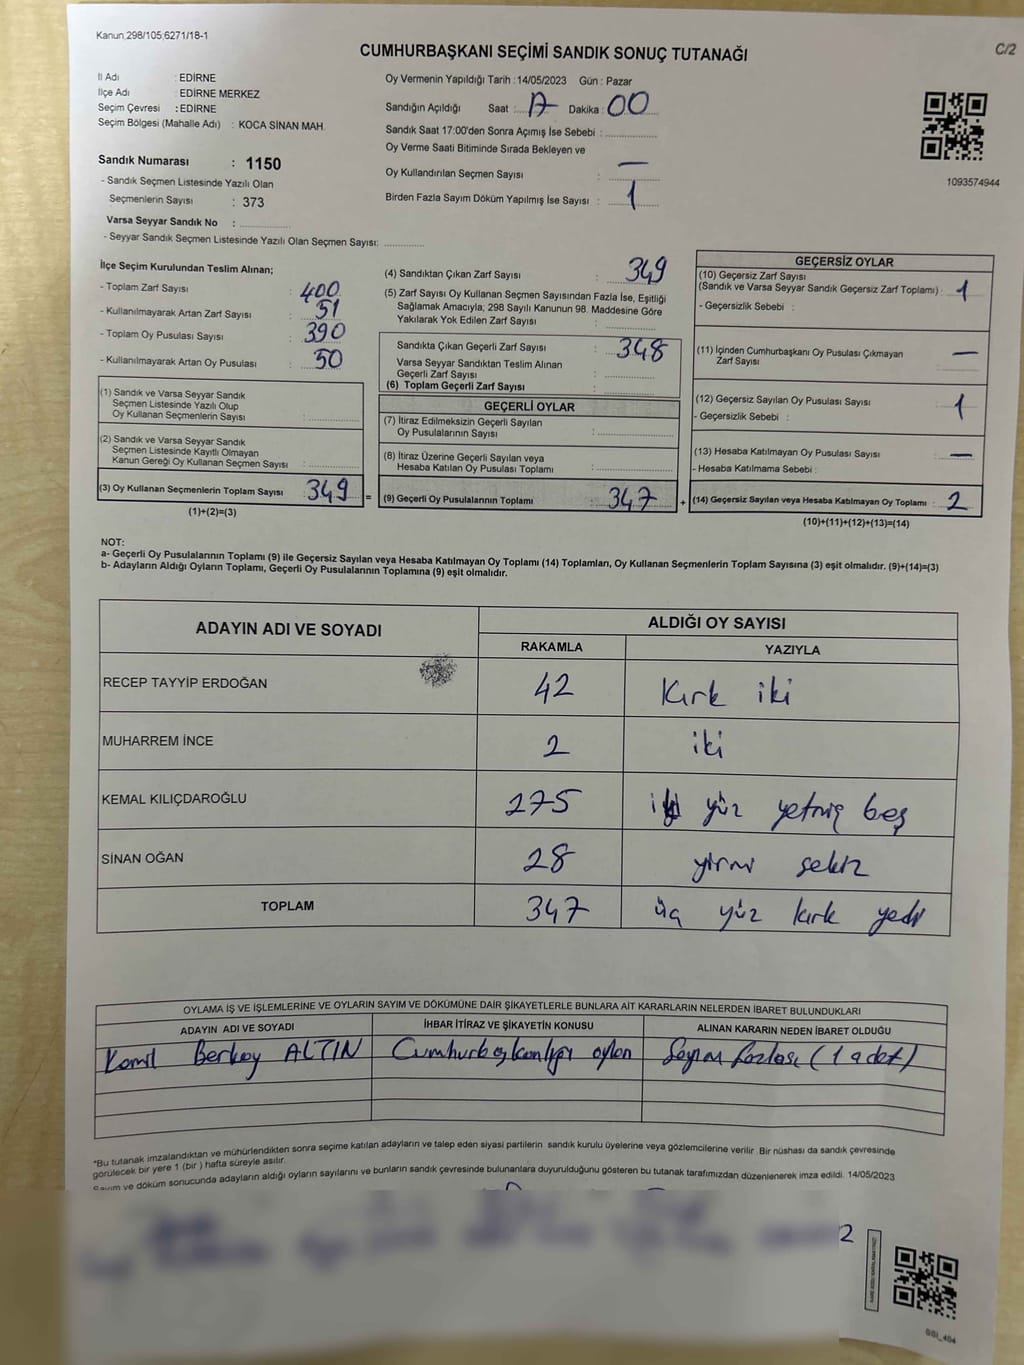 Kanun,298/105,6271/18-1
C/2
CUMHURBAŞKANI SEÇİMİ SANDIK SONUÇ TUTANAĞI
İl Adı : EDİRNE
İlçe Adı : EDİRNE MERKEZ
Seçim Çevresi : EDİRNE
Seçim Bölgesi (Mahalle Adı) : KOCA SİNAN MAH.
Sandık Numarası : 1150
- Sandık Seçmen Listesinde Yazılı Olan
Seçmenlerin Sayısı : 373
Varsa Seyyar Sandık No :
- Seyyar Sandık Seçmen Listesinde Yazılı Olan Seçmen Sayısı:
Oy Vermenin Yapıldığı Tarih : 14/05/2023 Gün : Pazar
Sandığın Açıldığı Saat : 17 Dakika : 00
Sandık Saat 17:00'den Sonra Açımış İse Sebebi :
Oy Verme Saati Bitiminde Sırada Bekleyen ve
Oy Kullandırılan Seçmen Sayısı : —
Birden Fazla Sayım Döküm Yapılmış İse Sayısı : 1
1093574944
İlçe Seçim Kurulundan Teslim Alınan;
- Toplam Zarf Sayısı : 400
- Kullanılmayarak Artan Zarf Sayısı : 51
- Toplam Oy Pusulası Sayısı : 390
- Kullanılmayarak Artan Oy Pusulası : 50
(1) Sandık ve Varsa Seyyar Sandık
Seçmen Listesinde Yazılı Olup
Oy Kullanan Seçmenlerin Sayısı :
(2) Sandık ve Varsa Seyyar Sandık
Seçmen Listesinde Kayıtlı Olmayan
Kanun Gereği Oy Kullanan Seçmen Sayısı :
(3) Oy Kullanan Seçmenlerin Toplam Sayısı : 349
(1)+(2)=(3)
=
(4) Sandıktan Çıkan Zarf Sayısı : 349
(5) Zarf Sayısı Oy Kullanan Seçmen Sayısından Fazla İse, Eşitliği
Sağlamak Amacıyla; 298 Sayılı Kanunun 98. Maddesine Göre
Yakılarak Yok Edilen Zarf Sayısı :
Sandıkta Çıkan Geçerli Zarf Sayısı : 348
Varsa Seyyar Sandıktan Teslim Alınan
Geçerli Zarf Sayısı :
(6) Toplam Geçerli Zarf Sayısı :
GEÇERLİ OYLAR
(7) İtiraz Edilmeksizin Geçerli Sayılan
Oy Pusulalarının Sayısı :
(8) İtiraz Üzerine Geçerli Sayılan veya
Hesaba Katılan Oy Pusulası Toplamı :
(9) Geçerli Oy Pusulalarının Toplamı : 347
+
GEÇERSİZ OYLAR
(10) Geçersiz Zarf Sayısı
(Sandık ve Varsa Seyyar Sandık Geçersiz Zarf Toplamı) : 1
- Geçersizlik Sebebi :
(11) İçinden Cumhurbaşkanı Oy Pusulası Çıkmayan
Zarf Sayısı : —
(12) Geçersiz Sayılan Oy Pusulası Sayısı : 1
- Geçersizlik Sebebi :
(13) Hesaba Katılmayan Oy Pusulası Sayısı : —
- Hesaba Katılmama Sebebi :
(14) Geçersiz Sayılan veya Hesaba Katılmayan Oy Toplamı : 2
(10)+(11)+(12)+(13)=(14)
NOT:
a- Geçerli Oy Pusulalarının Toplamı (9) ile Geçersiz Sayılan veya Hesaba Katılmayan Oy Toplamı (14) Toplamları, Oy Kullanan Seçmenlerin Toplam Sayısına (3) eşit olmalıdır. (9)+(14)=(3)
b- Adayların Aldığı Oyların Toplamı, Geçerli Oy Pusulalarının Toplamına (9) eşit olmalıdır.
ADAYIN ADI VE SOYADI ALDIĞI OY SAYISI
RAKAMLA YAZIYLA
RECEP TAYYİP ERDOĞAN 42 Kırk iki
MUHARREM İNCE 2 iki
KEMAL KILIÇDAROĞLU 275 iki yüz yetmiş beş
SİNAN OĞAN 28 yirmi sekiz
TOPLAM 347 üç yüz kırk yedi
OYLAMA İŞ VE İŞLEMLERİNE VE OYLARIN SAYIM VE DÖKÜMÜNE DAİR ŞİKAYETLERLE BUNLARA AİT KARARLARIN NELERDEN İBARET BULUNDUKLARI
ADAYIN ADI VE SOYADI İHBAR İTİRAZ VE ŞİKAYETİN KONUSU ALINAN KARARIN NEDEN İBARET OLDUĞU
Berkay ALTIN Cumhurbaşkanlığı oyları Sayım fazlası (1 adet)
*Bu tutanak imzalandıktan ve mühürlendikten sonra seçime katılan adayların ve talep eden siyasi partilerin sandık kurulu üyelerine veya gözlemcilerine verilir. Bir nüshası da sandık çevresinde
görülecek bir yere 1 (bir ) hafta süreyle asılır.
Sayım ve döküm sonucunda adayların aldığı oyların sayılarını ve bunların sandık çevresinde bulunanlara duyurulduğunu gösteren bu tutanak tarafımızdan düzenlenerek imza edildi. 14/05/2023
2
GGI_404